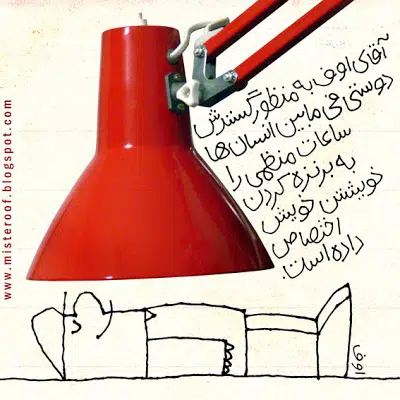 آقای اوف به منظور گسترش
دوستی فی مابین انسان ها
ساعات منظمی را
به برنزه کردن
خویشتن خویش
اختصاص
داده است.
www.misteroof.blogspot.com